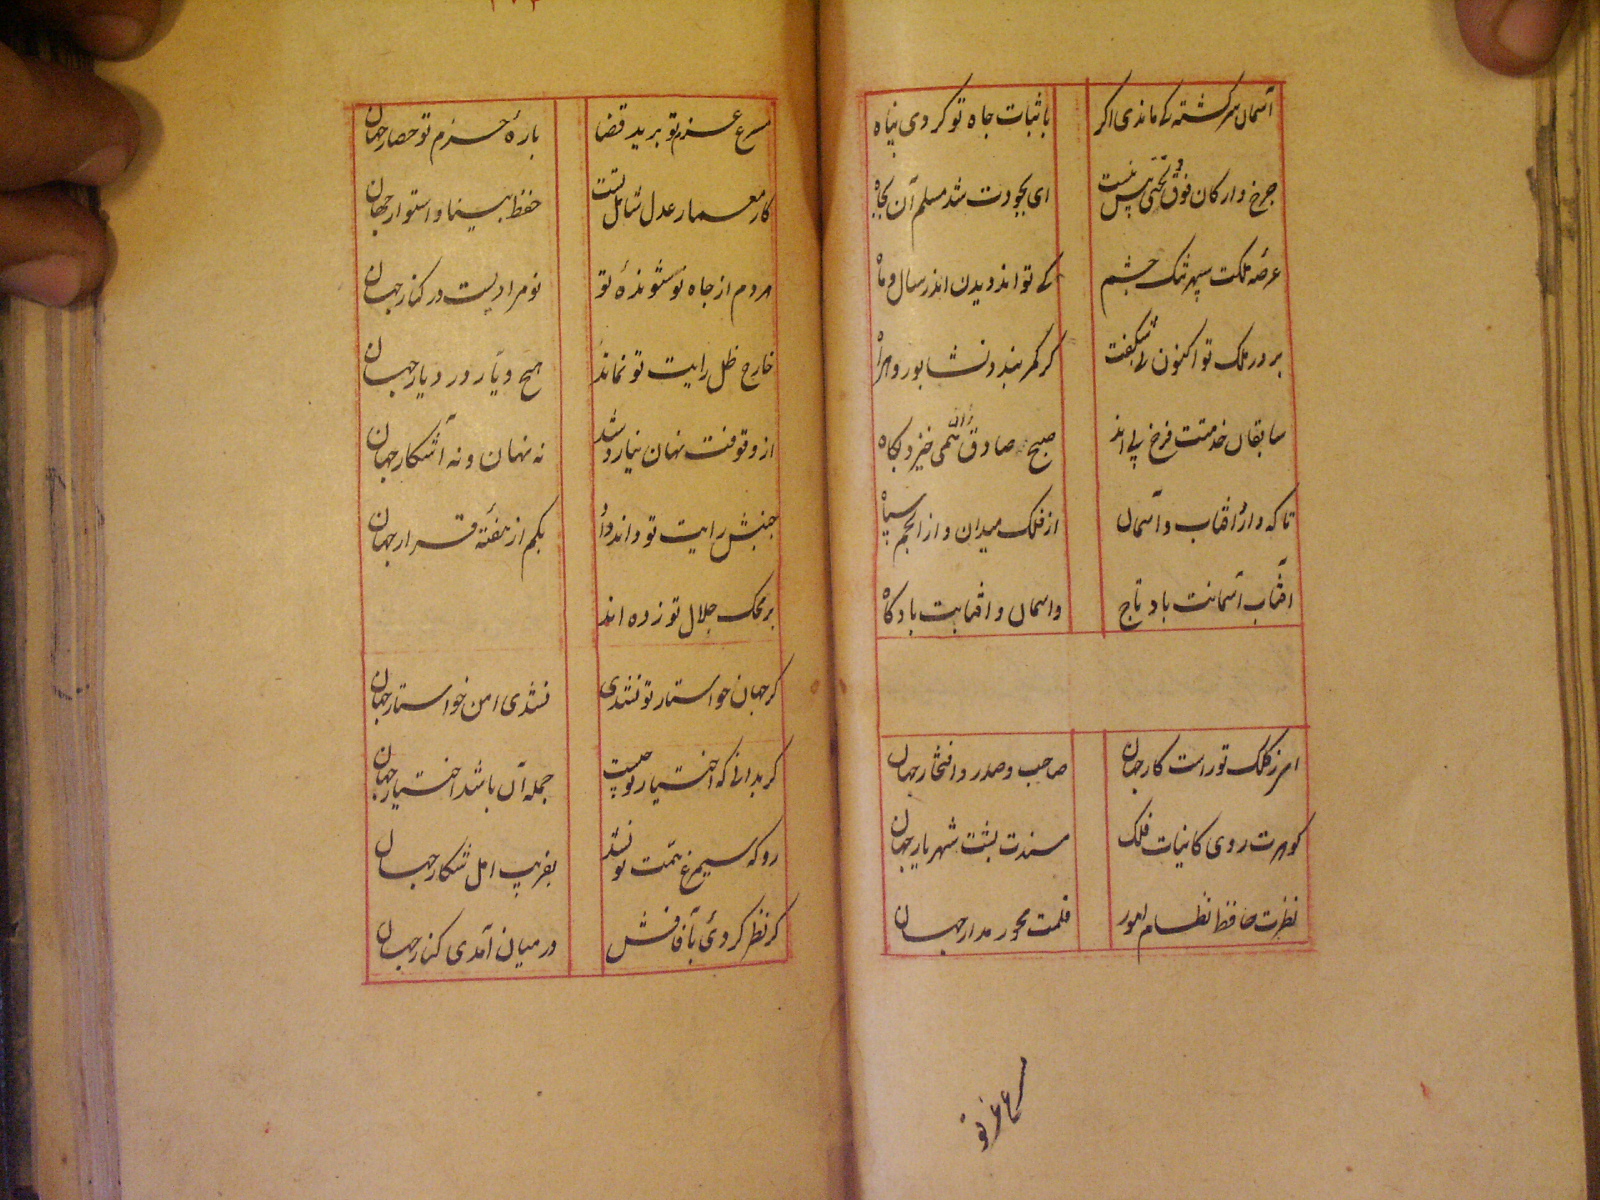 آسمان سرگشته کی ماندی اگر
با ثبات جاه تو کردی پناه
چرخ و ارکان فوق و تحتی پیش نیست
ای بجودت شد مسلم آن بجاه
عرصه ملکت سپهر تنگ چشم
کی تواند دیدن اندر سال و ماه
بر در ملک تو اکنون شگفت
گر کمر بندد نشابور و هراه
سابقان خدمتت فرخ پی اند
صبح صادق زان همی خیزد بگاه
تا که دارد افتاب و آسمان
از فلک میدان و از انجم سپاه
افتاب آسمانت باد تاج
واسمان و افتابت باد گاه
امر کلک تو راست کار جهان
صاحب و صدر و افتخار جهان
گوهرت روی کاینات فلک
مسندت پشت شهریار جهان
نظرت حافظ نظام امور
قلمت محور مدار جهان
سرع عزم تو
مسرع عزم تو برید قضا
باره حزم تو حصار جهان
کار معمار عدل شامل تست
حفظ بنیاد استوار جهان
مردم از جاه تو شونده تو
نو مرادیست در کنار جهان
خارج ظل رایت تو نماند
هیچ دیار در دیار جهان
از وقوفت نهان نیارد شد
نه نهان و نه آشکار جهان
جنبش رایت تو داند داد
بکم از هفته قرار جهان
بر محک جلال تو زده اند
گر جهان خواستار تو نشدی
نشدی امن خواستار جهان
گر بدانی که اختیار تو چیست
جمله آن باشد اختیار جهان
رو که سیمرغ همت تو نشد
بفریب امل شکار جهان
گر نظر کردی بآفاقش
در میان آمدی کنار جهان